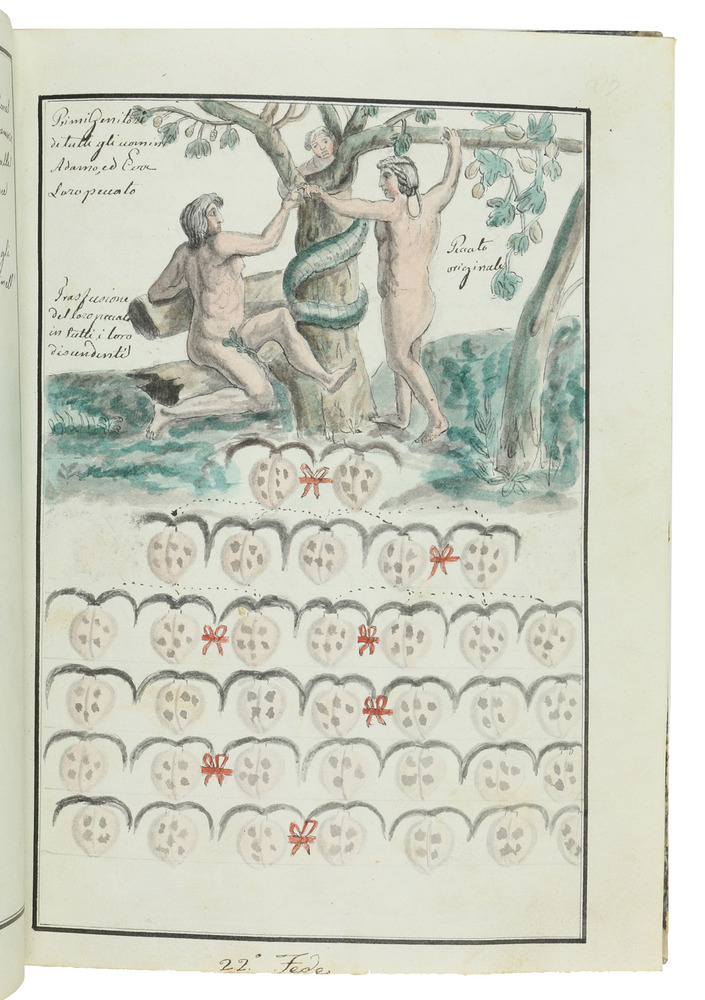 Primi Genitori
di tutti gli uomini
Adamo, ed Eva
Loro peccato
Peccato
originale
Trasfusione
del loro peccato
in tutti i loro
discendenti
22.° Fede